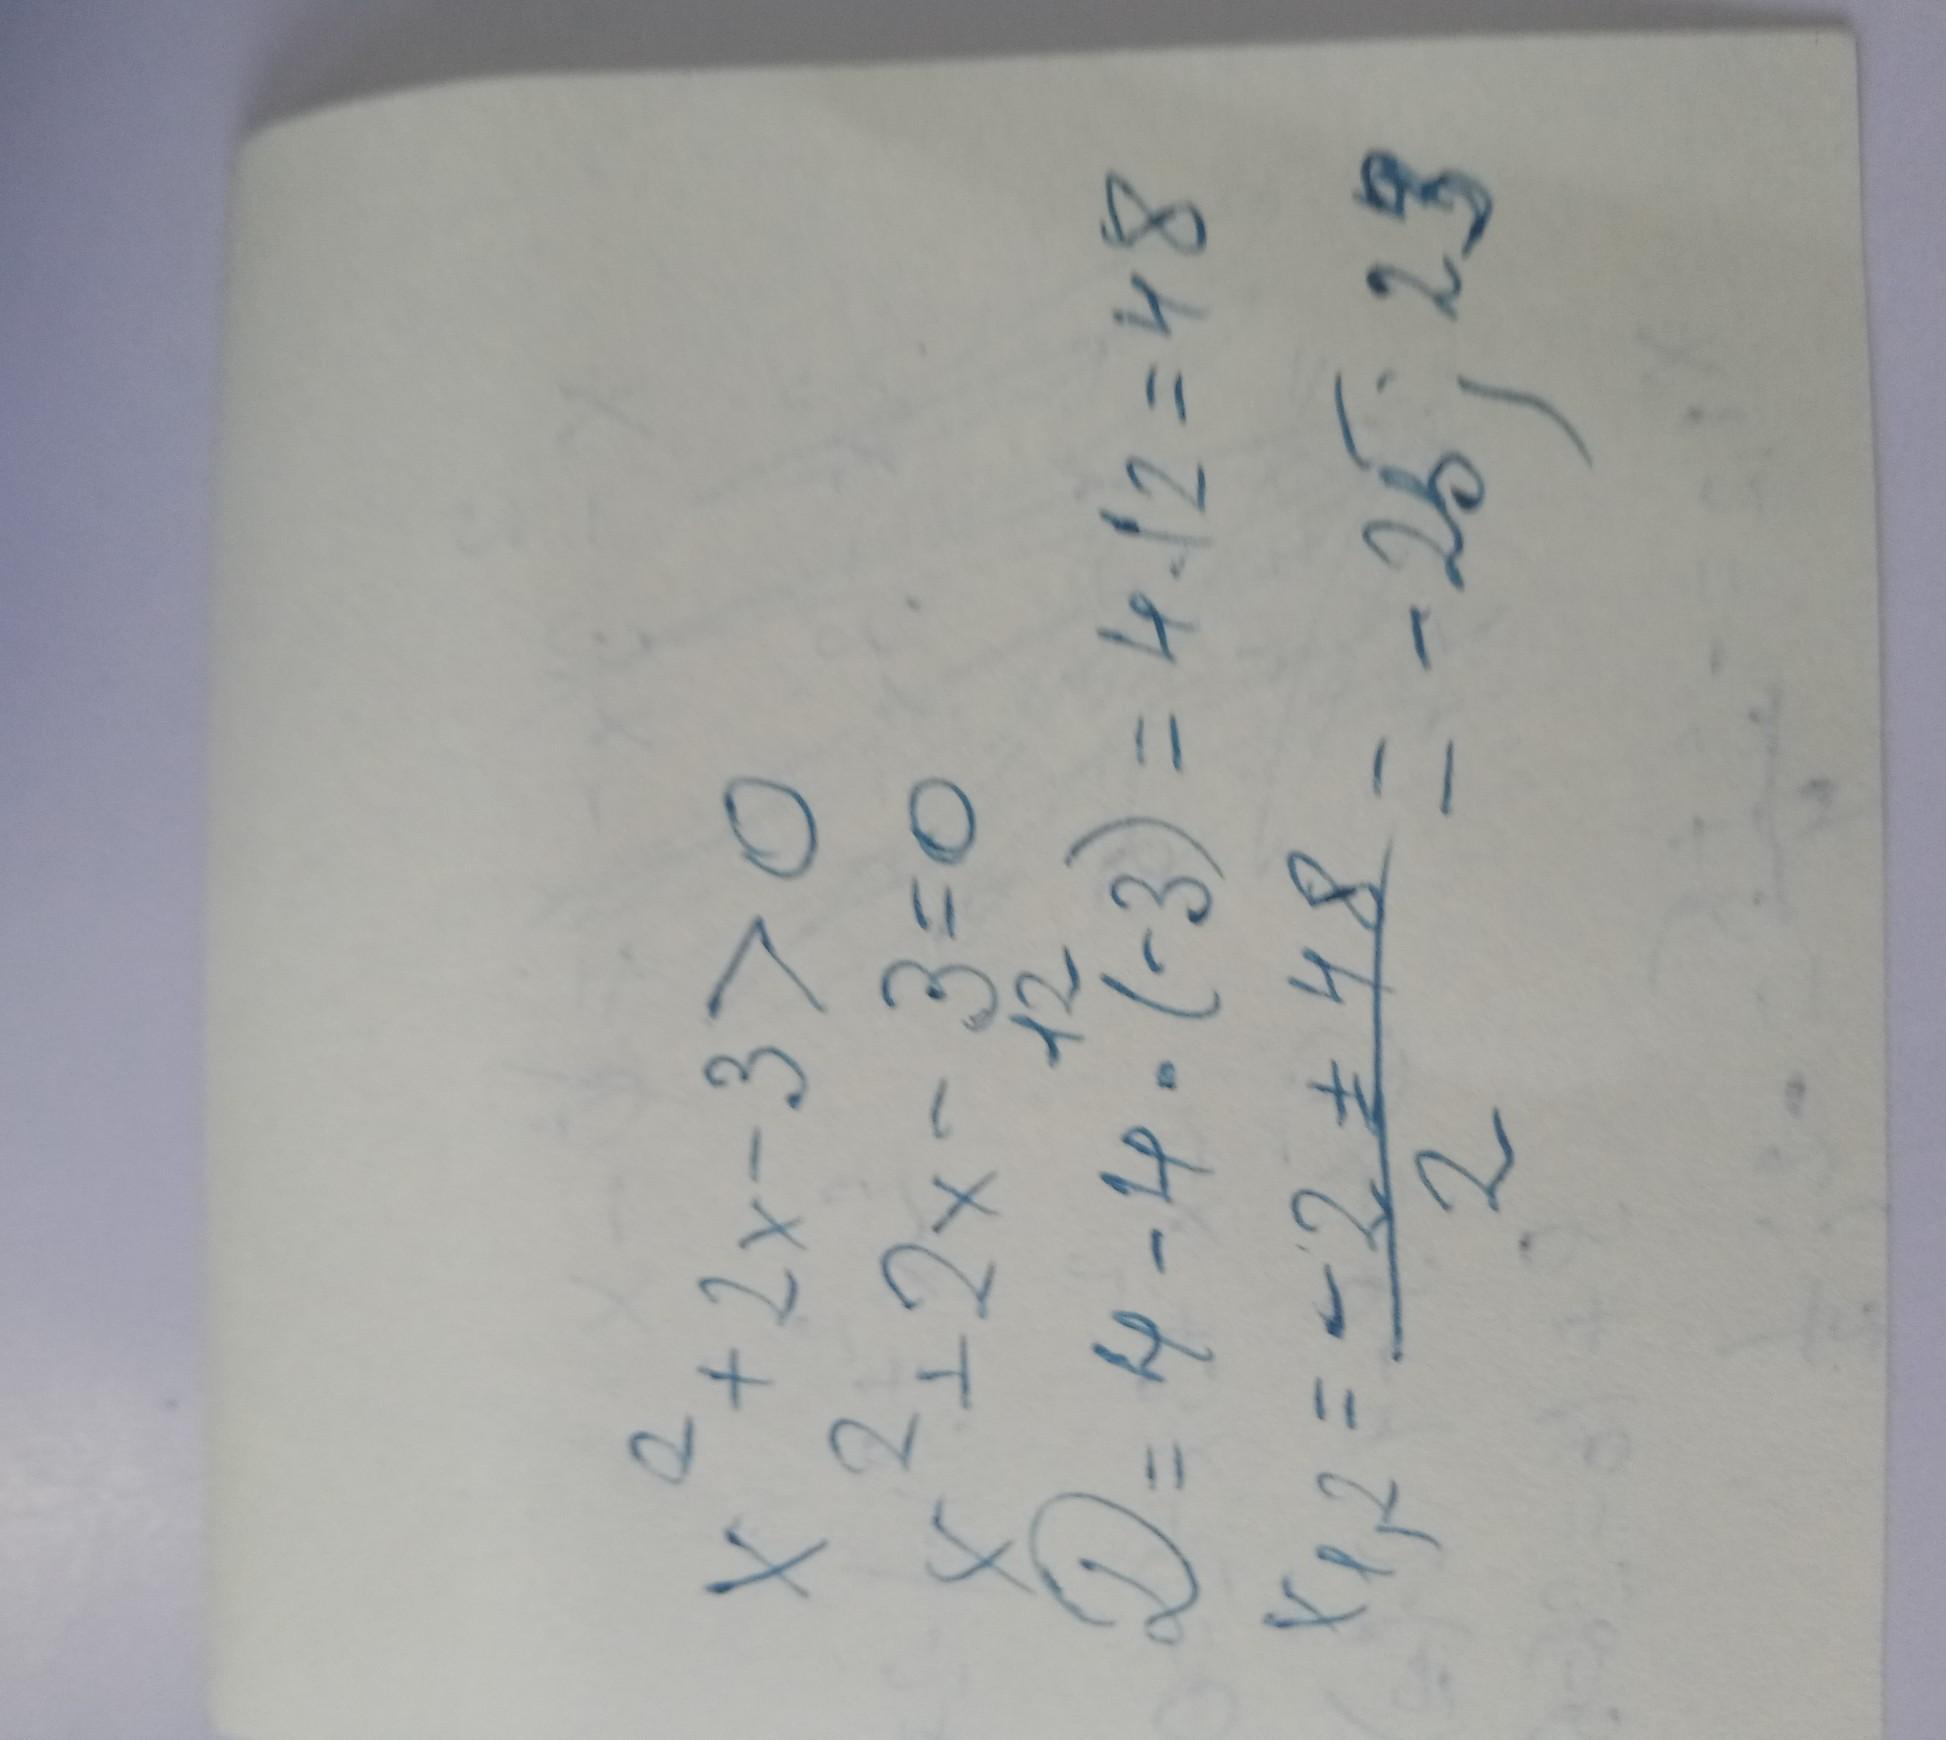 x² + 2x - 3 > 0
x² + 2x - 3 = 0
12
D = 4 - 4 · (-3) = 4 · 12 = 48
x₁,₂ = (-2 ± 48) / 2 = -25; 23